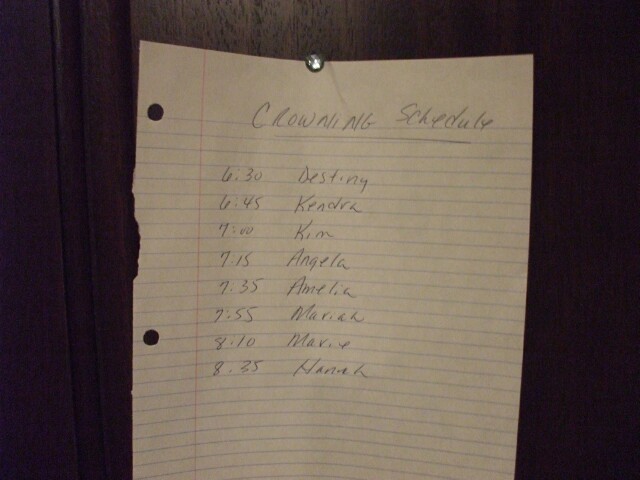 CROWNING Schedule
6:30 Destiny
6:45 Kendra
7:00 Kim
7:15 Angela
7:35 Amelia
7:55 Mariah
8:10 Marie
8:35 Hannah